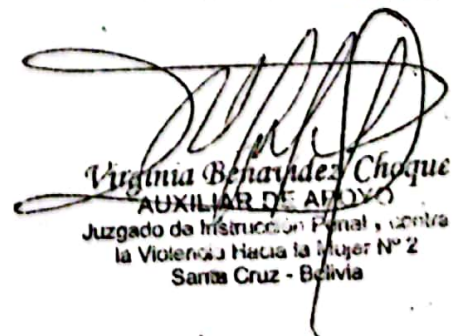 Virginia Benavidez Choque
AUXILIAR DE APOYO
Juzgado de Instrucción Penal, contra
la Violencia Hacia la Mujer N° 2
Santa Cruz - Bolivia